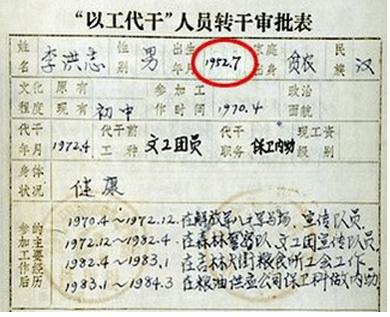 “以工代干”人员转干审批表
姓名 李洪志 性别 男 出生年月 1952.7 家庭出身 贫农 民族 汉
文化程度 原有 现有 初中 参加工作时间 1970.4 政治面貌
代干年月 1972.4 代干前工种 文工团员 现代干职务 保卫内勤 现工资级别
身体状况 健康
参加工作后的主要经历
1970.4～1972.12. 在解放军八一军马场, 宣传队员.
1972.12～1982.4 在森林警察队文工团宣传队员.
1982.4～1983.1 在吉林大街粮食所工会工作
1983.1～1984.3 在粮油供应公司保卫科做内勤.